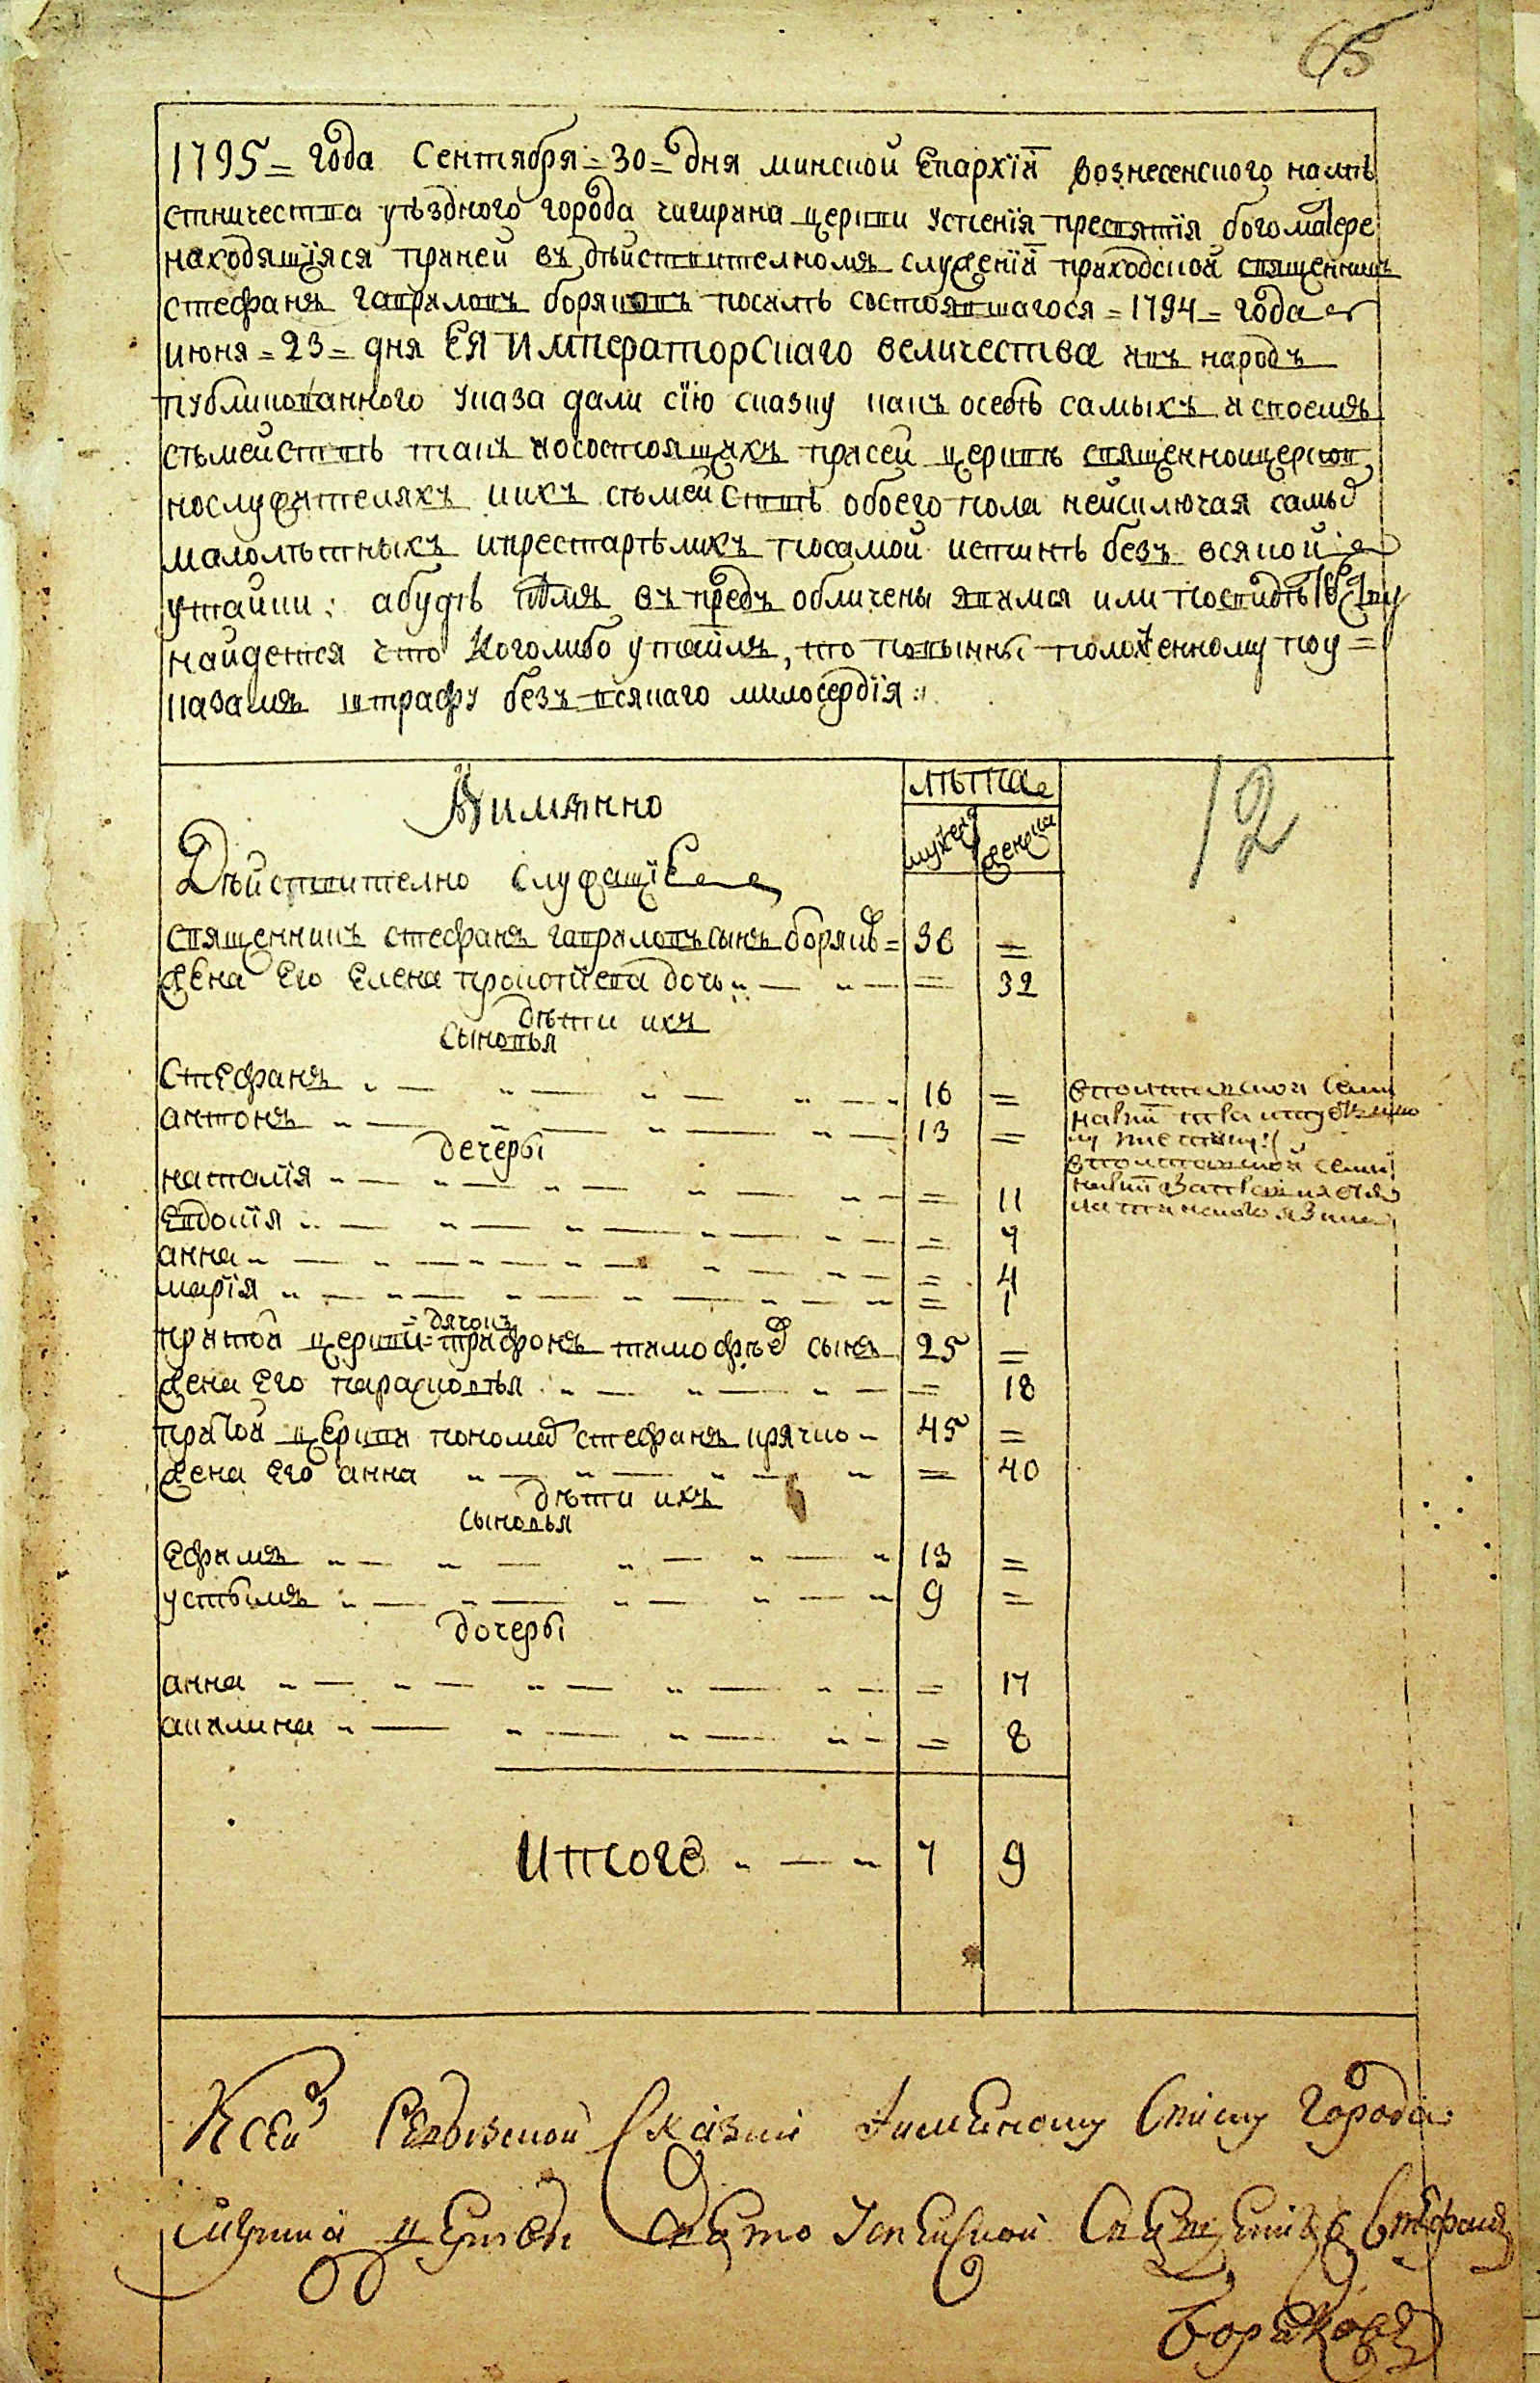 65
1795 = года Сентября = 30 = дня минской Епархїи вознесенского намѣ
стничества уѣздного города чигирина церкви успенїя пресвятїя богоматере
находящїяся приней въ дѣйствителномъ служенїи приходской священникъ
стефанъ гавриловъ боряковъ посилѣ состоявшагося = 1794 = года
июня = 23 = дня ЕЯ ИМператорСкаго величества въ народъ
публикованного указа дали сїю сказку какъ осебѣ самыхъ и своемъ
сѣмействѣ такъ и осостоящихъ присей церквѣ священноицерков
нослужителяхъ иихъ сѣмействѣ обоего пола неисключая самых
малолѣтныхъ ипрестарѣлихъ посамой истиннѣ безъ всякой
утайки: абудѣ въпредъ обличены явимся или
найдется что Коголибо утаилъ, то повынны положенному поу=
казамъ штрафу безъ всякаго милосердїя:
Аимянно
лѣта
12
мужеска
женска
Дѣйствително служащїЕ
священникъ стефанъ гавриловъ сынъ боряков = 36 =
жена Его Елена прокопїева дочь = 32
дѣти ихъ
Сыновья
Стефанъ 16 =
антонъ 13 =
дочеры
наталїя = 11
Евдокїя = 7
анна = 4
марїя = 1
притой церкви = дячокъ = трифонъ тимофѣев сынъ 25 =
жена Его парасковья = 18
притой церкви пономар стефанъ крячко 45 =
жена Его анна = 40
дѣти ихъ
сыновья
Ефимъ 13 =
устымъ 9 =
дочеры
анна = 17
акилина = 8
Итого 7 9
Ксей Ревизской Сказки Аимяному Списку Города
Чигрина церкви Свято Успенской Священникъ Стефанъ
Боряковъ